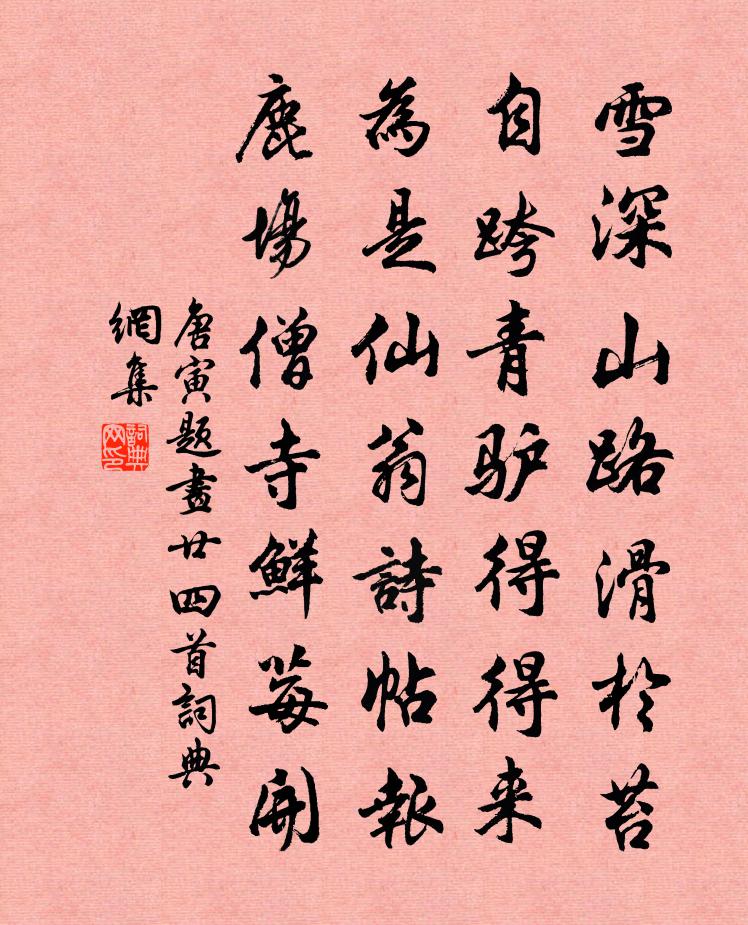 雪深山路滑於苔
自跨青驴得得来
為是仙翁詩帖報
鹿場僧寺鮮莓開
唐寅题畫廿四首詞典
網集
詞典
网印